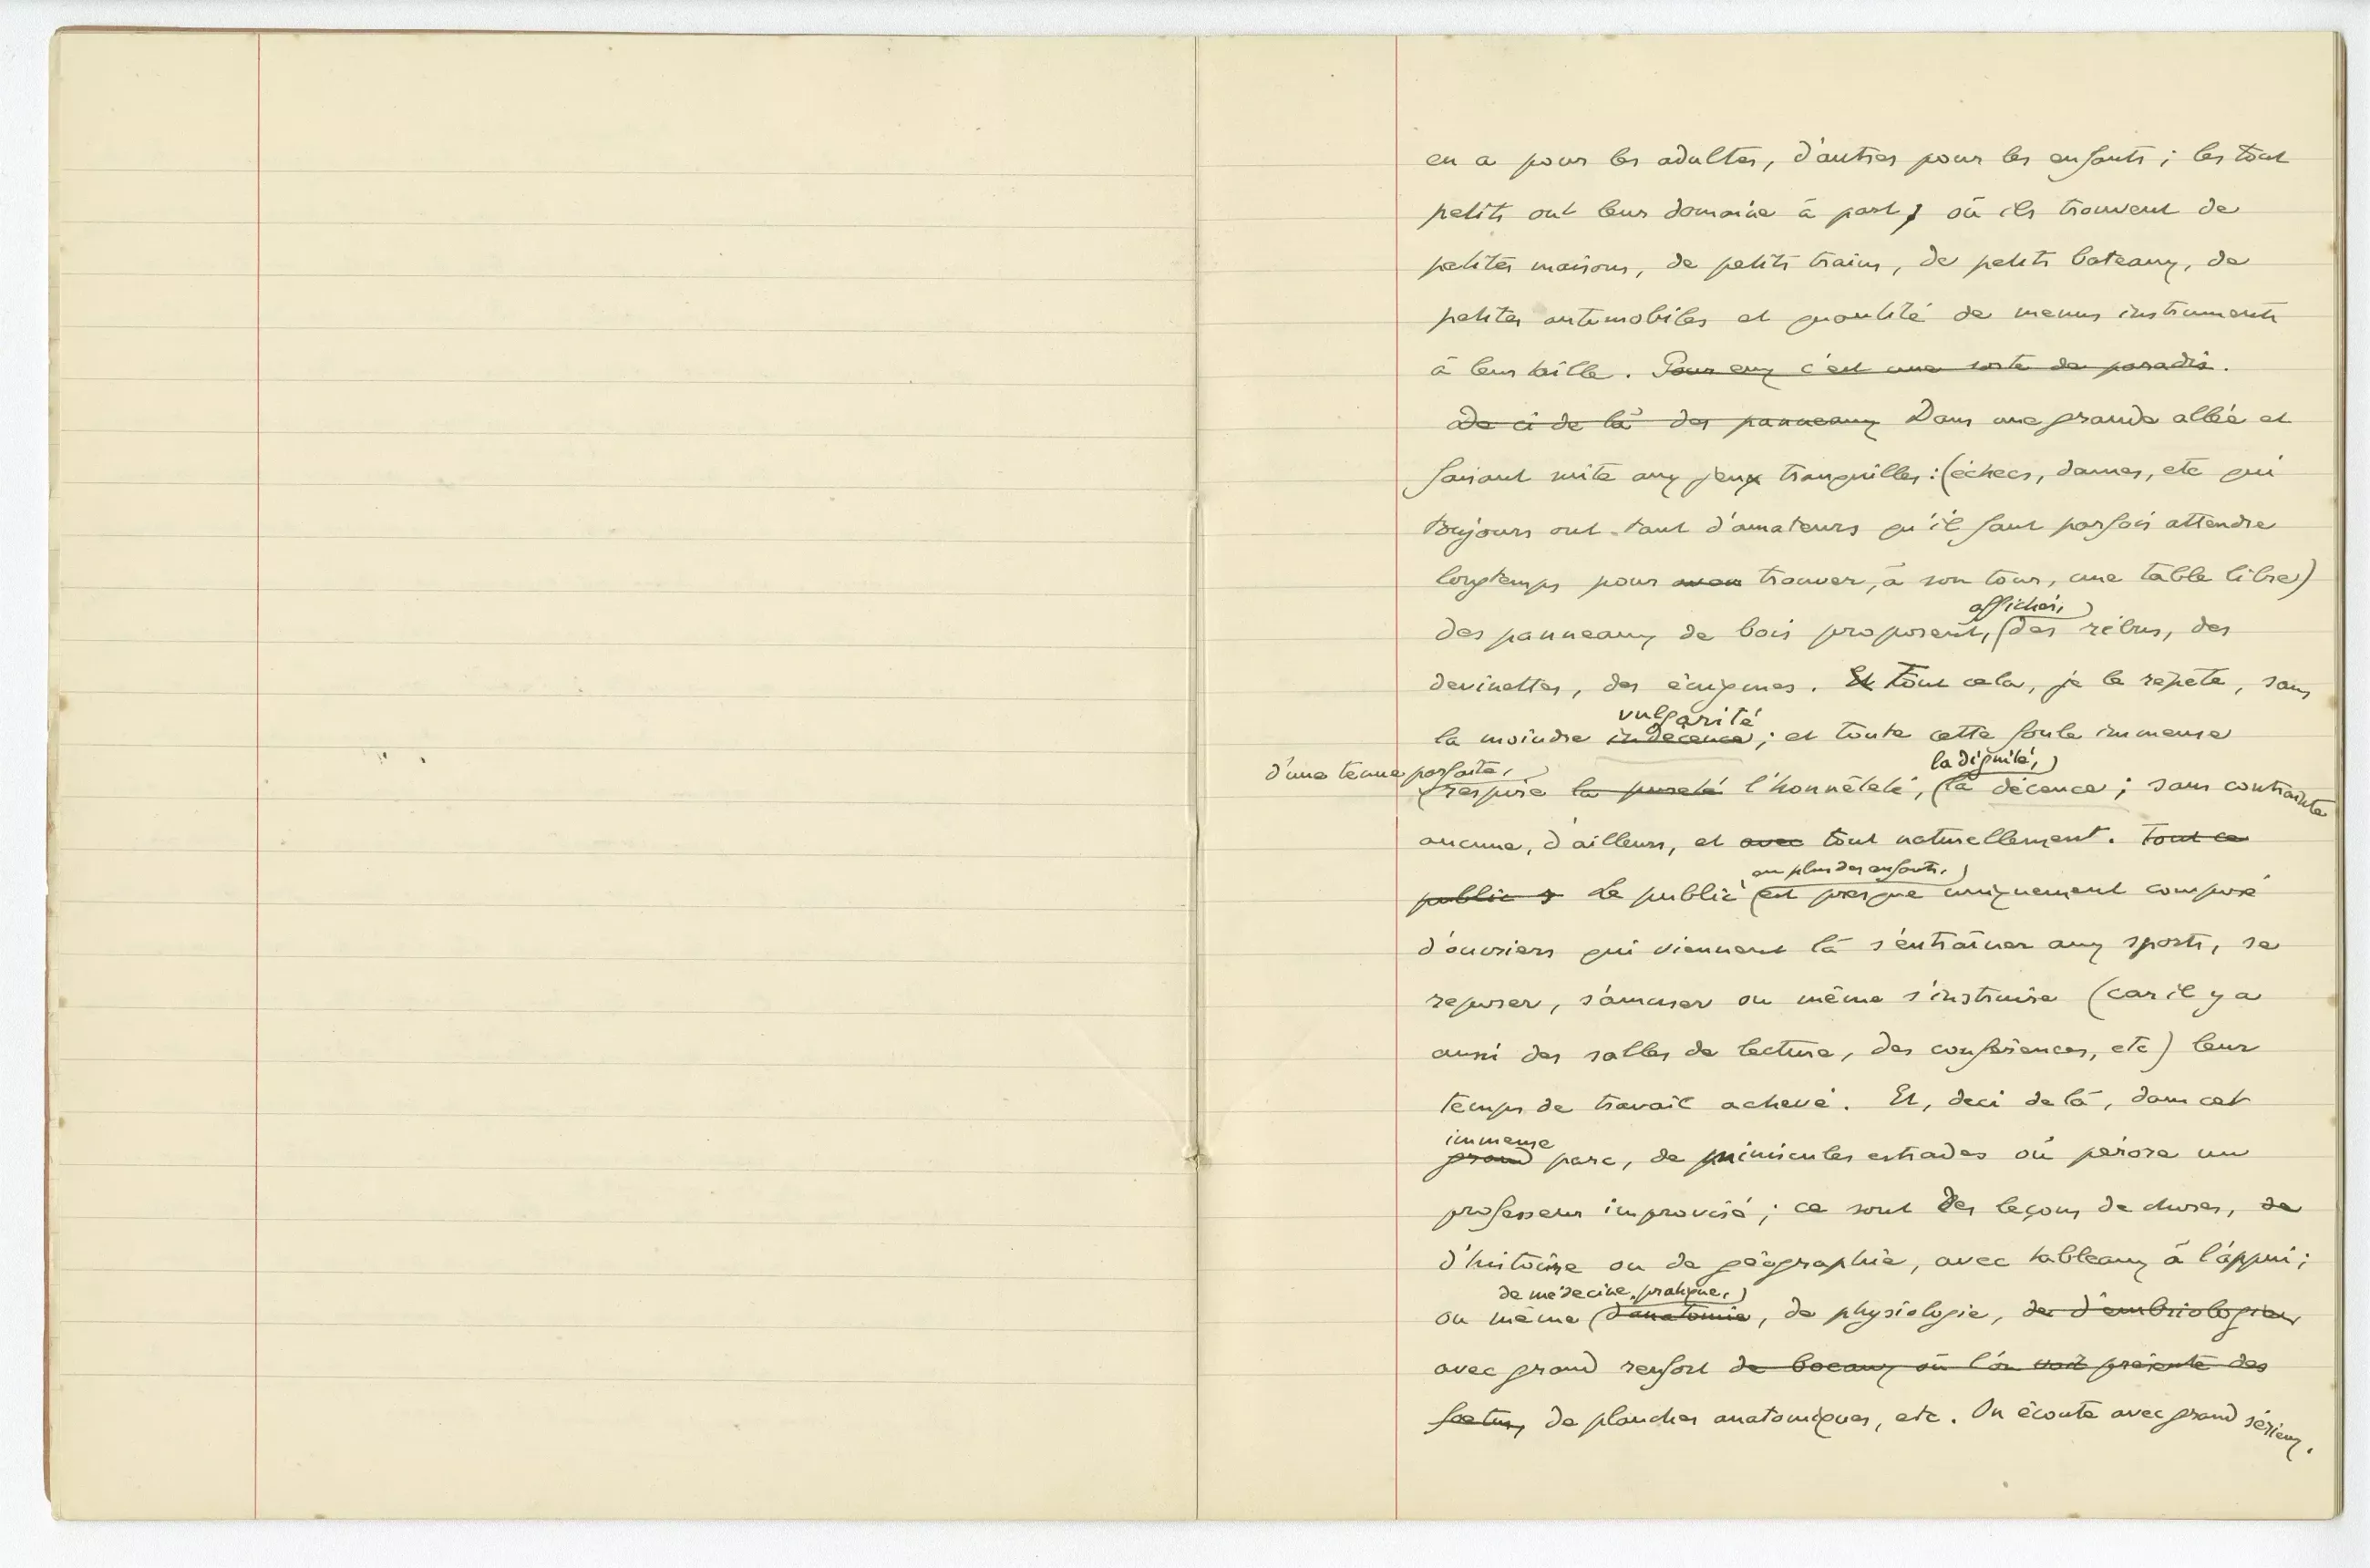 en a pour les adultes, d'autres pour les enfants ; les tout
petits ont leur domaine à part, où ils trouvent de
petites maisons, de petits trains, de petits bateaux, de
petites automobiles et quantité de menus instruments
à leur taille. Pour eux c'est une sorte de paradis.
De ci de là des panneaux Dans une grande allée et
faisant suite aux jeux tranquilles : (échecs, dames, etc qui
toujours ont tant d'amateurs qu'il faut parfois attendre
longtemps pour avoir trouver, à son tour, une table libre)
affichés,
des panneaux de bois proposent, des rébus, des
devinettes, des énigmes. Et tout cela, je le répète, sans
vulgarité
la moindre indécence ; et toute cette foule immense
d'une tenue parfaite, la dignité,
respire la pureté l'honnêteté, la décence ; sans contrainte
aucune, d'ailleurs, et avec tout naturellement. Tout ce
en plus des enfants,
public s Le public est presque uniquement composé
d'ouvriers qui viennent là s'entraîner aux sports, se
reposer, s'amuser ou même s'instruire (car il y a
aussi des salles de lecture, des conférences, etc) leur
temps de travail achevé. Et, deci de là, dans cet
immense
grand parc, de minuscules estrades où pérore un
professeur improvisé ; ce sont des leçons de choses, de
d'histoire ou de géographie, avec tableaux à l'appui ;
de médecine pratique,
ou même d'anatomie, de physiologie, de d'embriologie,
avec grand renfort de bocaux où l'on voit présenté des
foetus, de planches anatomiques, etc. On écoute avec grand sérieux.